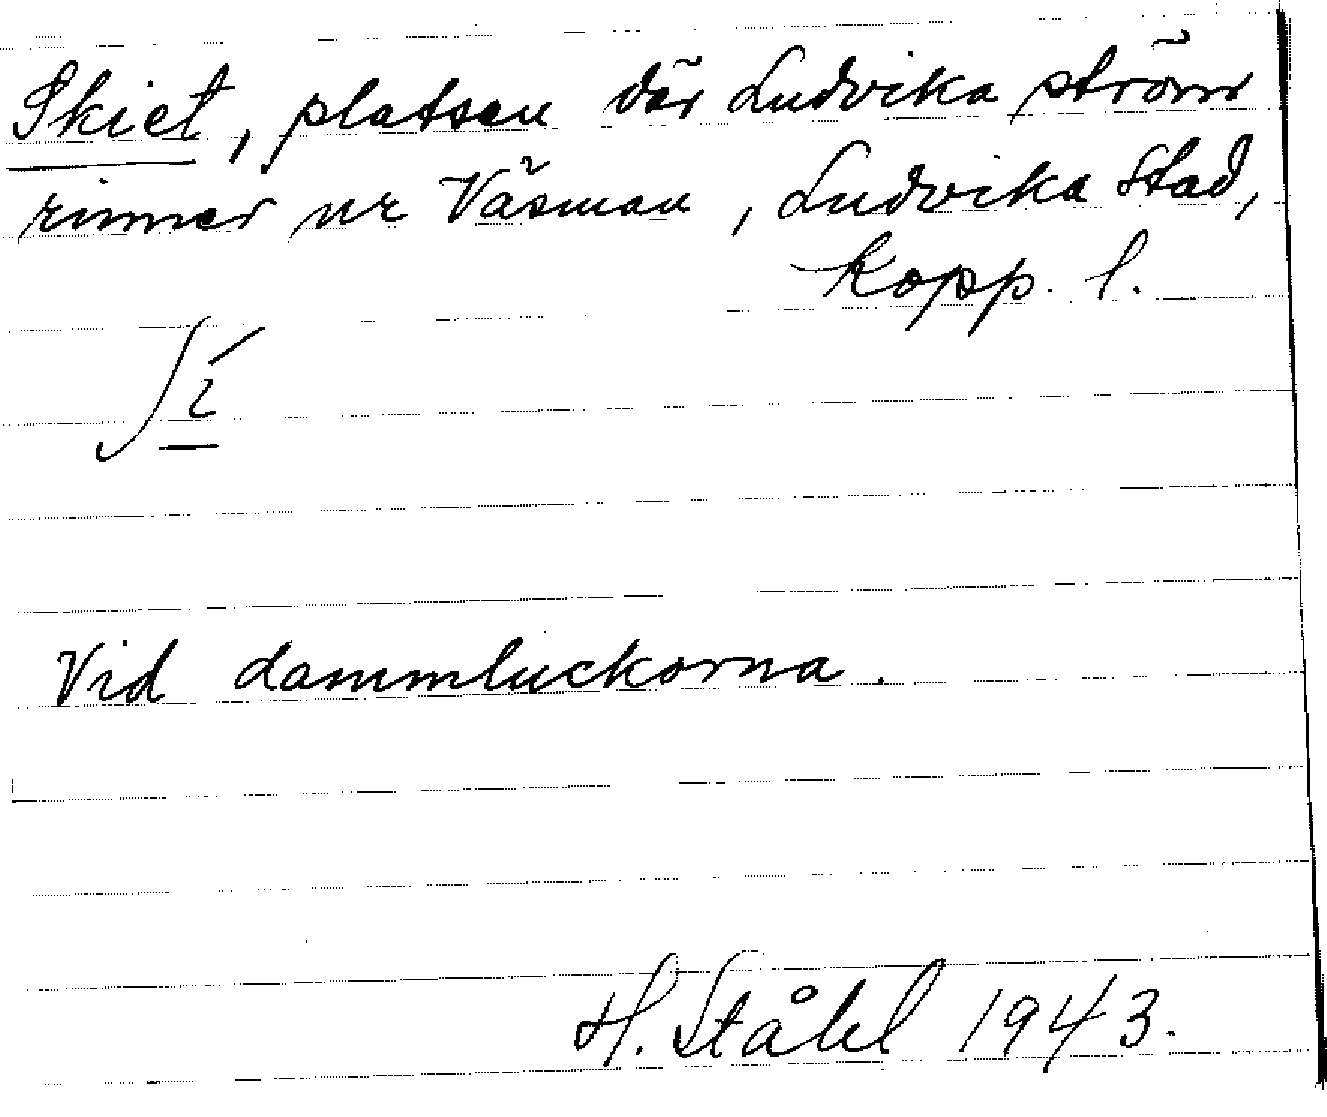 Skiet, platsen där Ludvika ström
rinner ur Väsman, Ludvika stad,
Kopp. l.
Vid dammluckorna.
H. Ståhl 1943.